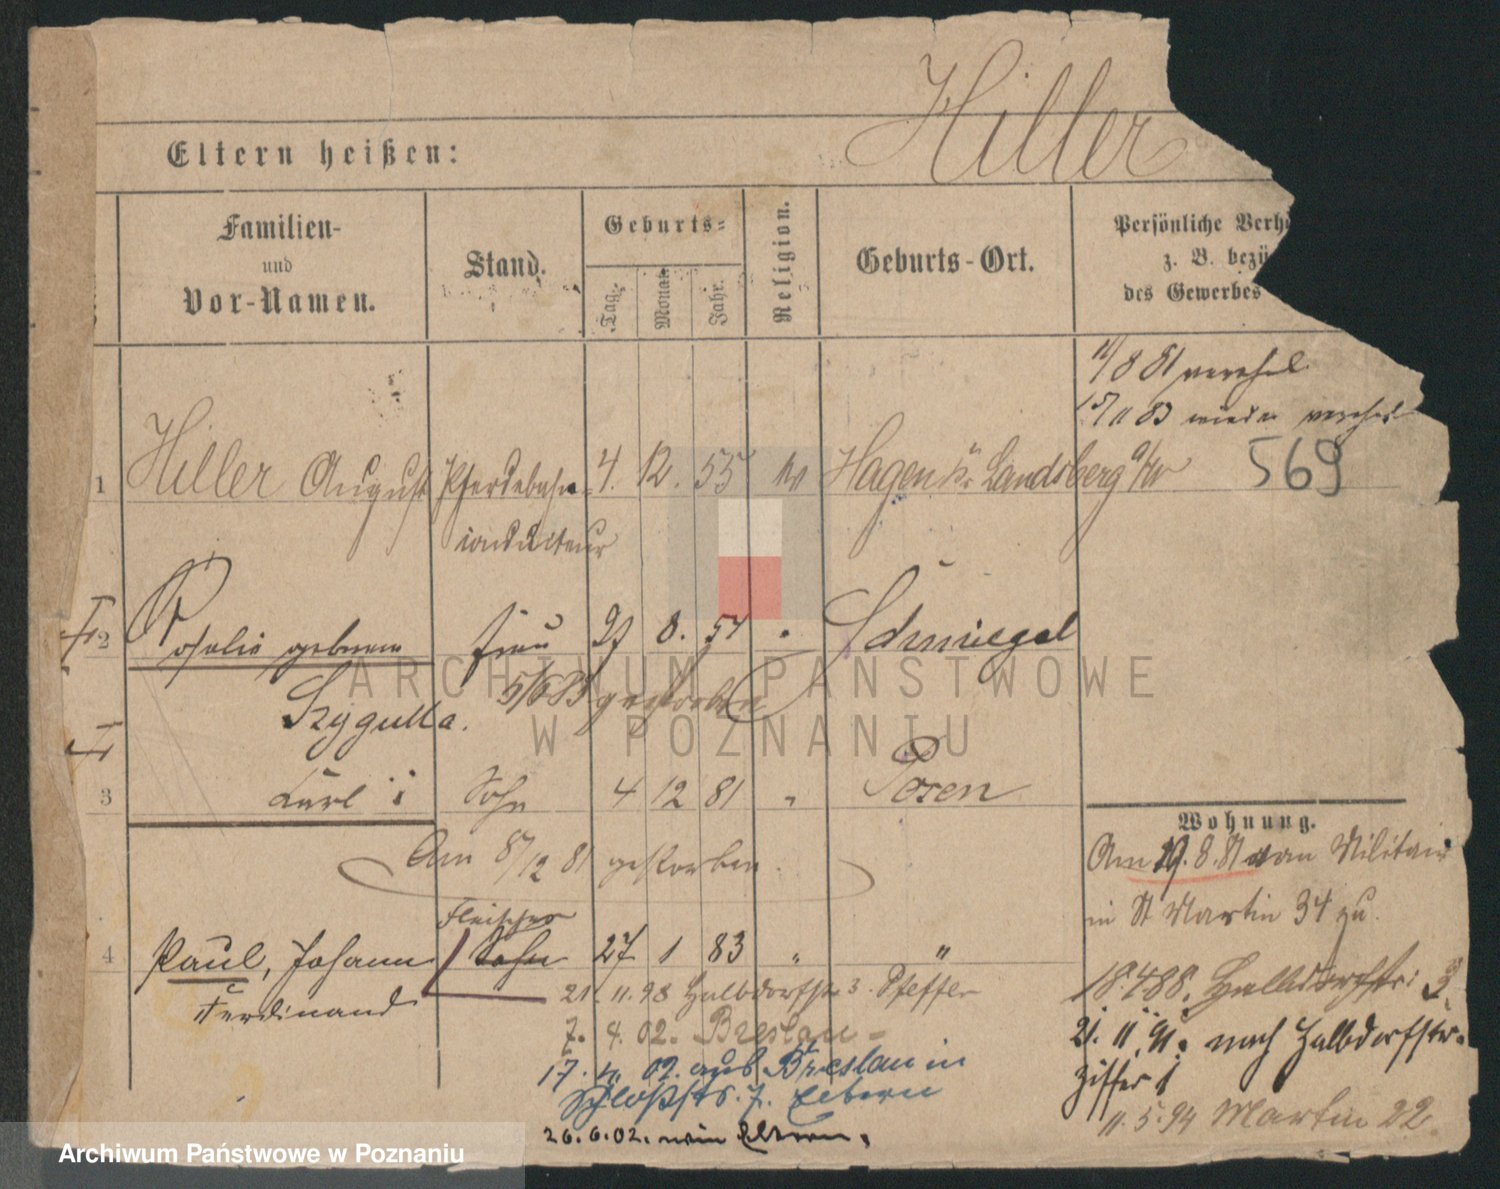 Hiller
Eltern heißen:
Familien-
und
Vor-Namen.
Stand.
Geburts-
Tag.
Monat.
Jahr.
Religion.
Geburts-Ort.
Persönliche Verh
z. B. bezü
des Gewerbes
11/8 81 verehel.
15/11 83 wieder verehel
569
1 Hiller August Pferdebahn- 4. 12. 55 Hagen Landsberg a/W
conducteur
2 Rosalie geborene Frau 27 8. 57 " Schmiegel
Szygulla. 5/6 83 gestorben
3 Karl Sohn 4 12 81 " Posen
Am 8/12 81 gestorben.
Fleischer
4 Paul, Johann Sohn 27 1 83 " "
Ferdinand
21. 11. 98 Halbdorfstr 3. Pfeffer
7. 4. 02. Breslau
17. 4. 02. aus Breslau in
Schloßstr. 7. Eltern
26. 6. 02. Eltern.
Wohnung.
Am 19. 8. 81 vom Militair
in St Martin 34 zu.
18. 4 88. Halbdorfstr: 3.
21. 11. 91. nach Halbdorfstr.
Ziffer 1
11. 5. 94 Martin 22
ARCHIWUM PAŃSTWOWE
W POZNANIU
Archiwum Państwowe w Poznaniu